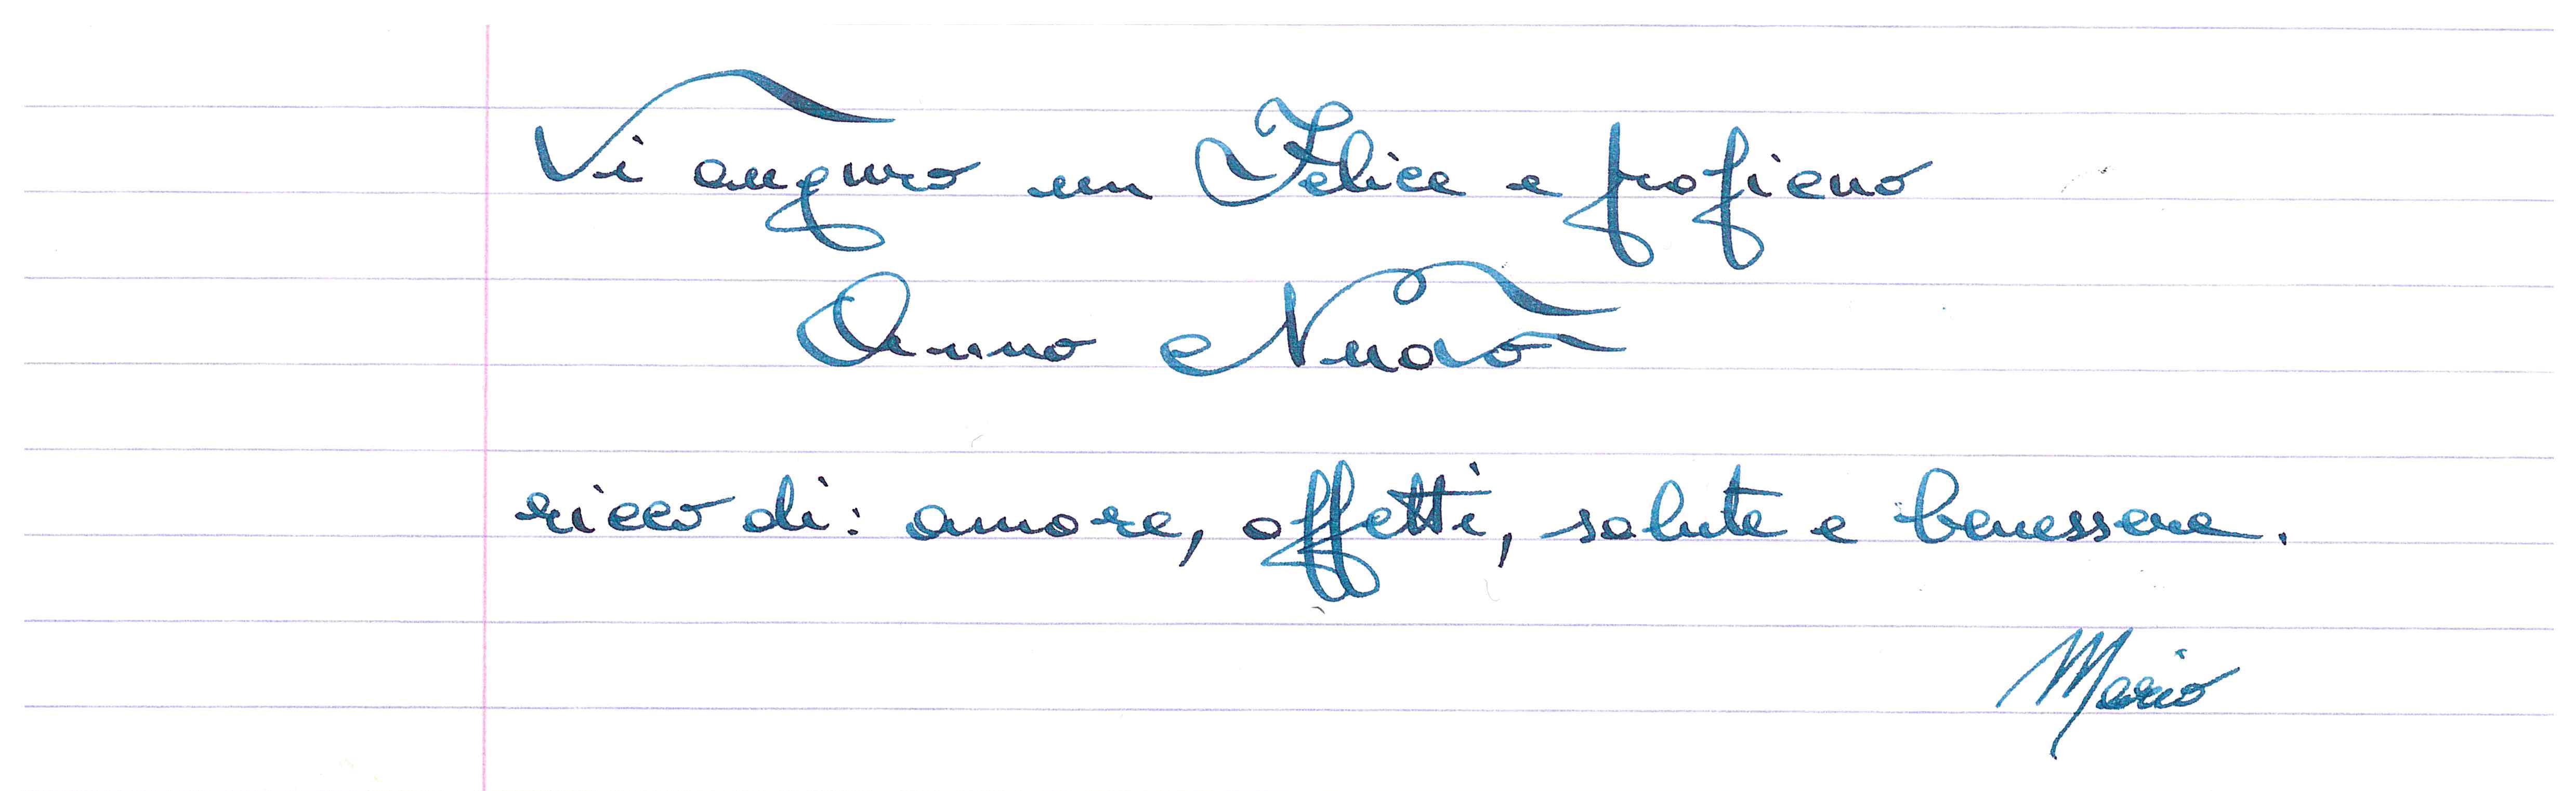 Vi auguro un Felice e proficuo
Anno Nuovo
ricco di: amore, affetti, salute e benessere.
Mario